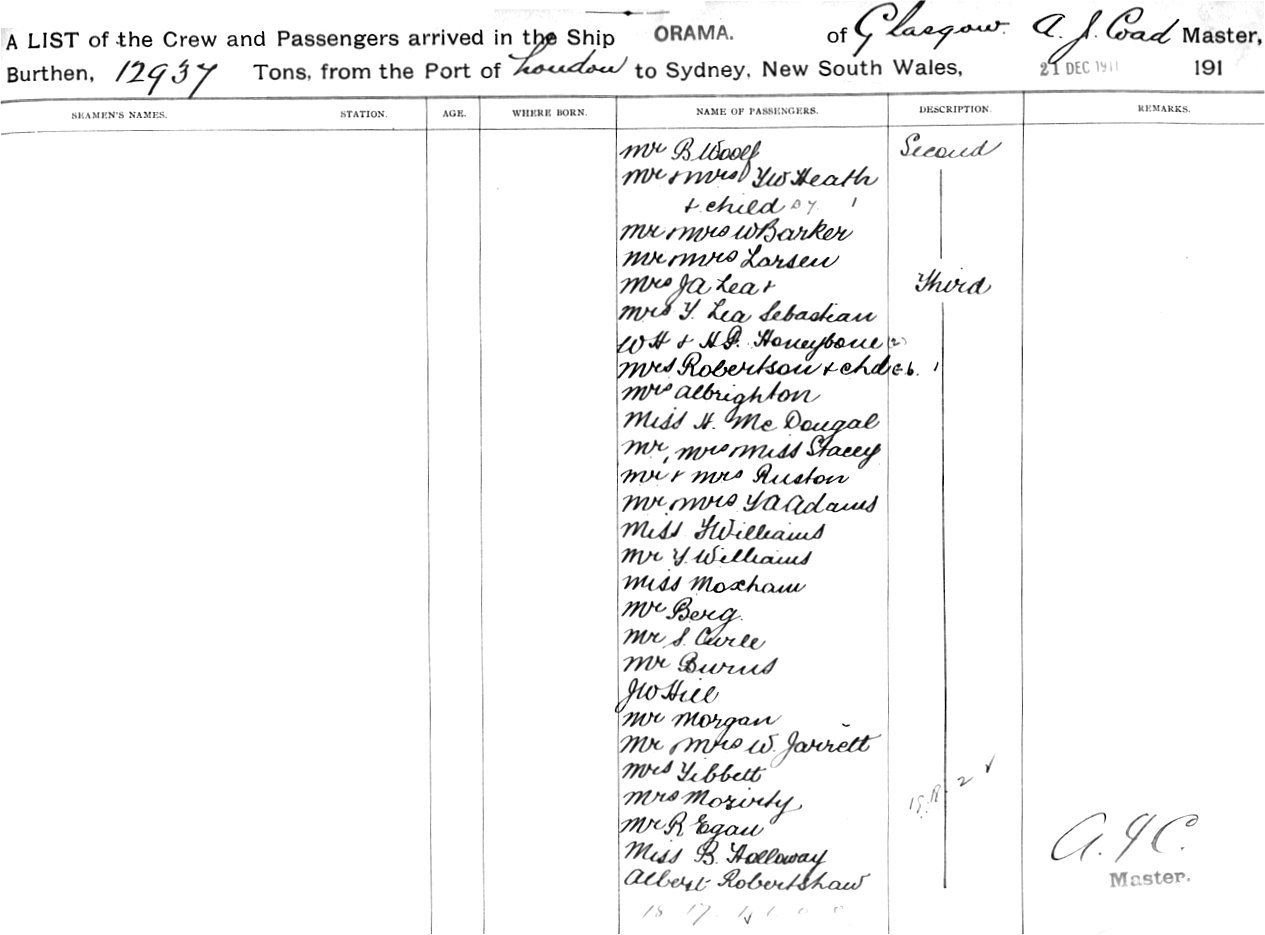 A LIST of the Crew and Passengers arrived in the Ship ORAMA. of Glasgow. A. J. Coad Master,
Burthen, 12937 Tons, from the Port of London to Sydney, New South Wales, 21 DEC 1911 191
SEAMEN'S NAMES. STATION. AGE. WHERE BORN. NAME OF PASSENGERS. DESCRIPTION. REMARKS.
Mr B Woolf Second
Mr & Mrs Heath
& child 1
Mr Mrs W Barker
Mr Mrs Larsen
Mrs JA Lea & Third
Mrs Y. Lea Sebastian
WH & H Honeybone (2)
Mrs Robertson & chd 1
Mrs Albrighton
Miss H. McDougal
Mr, Mrs Miss Stacey
Mr & Mrs Ruston
Mr Mrs Adams
Miss Williams
Mr Y. Williams
Miss Moxham
Mr Berg.
Mr S. Curle
Mr Burns
JW Hill
Mr Morgan
Mr Mrs W. Jarrett
Mrs Tibbett
Mrs 2
Mr R Egan
Miss B. Holloway A. J C.
Albert Robertshaw Master.
18 17